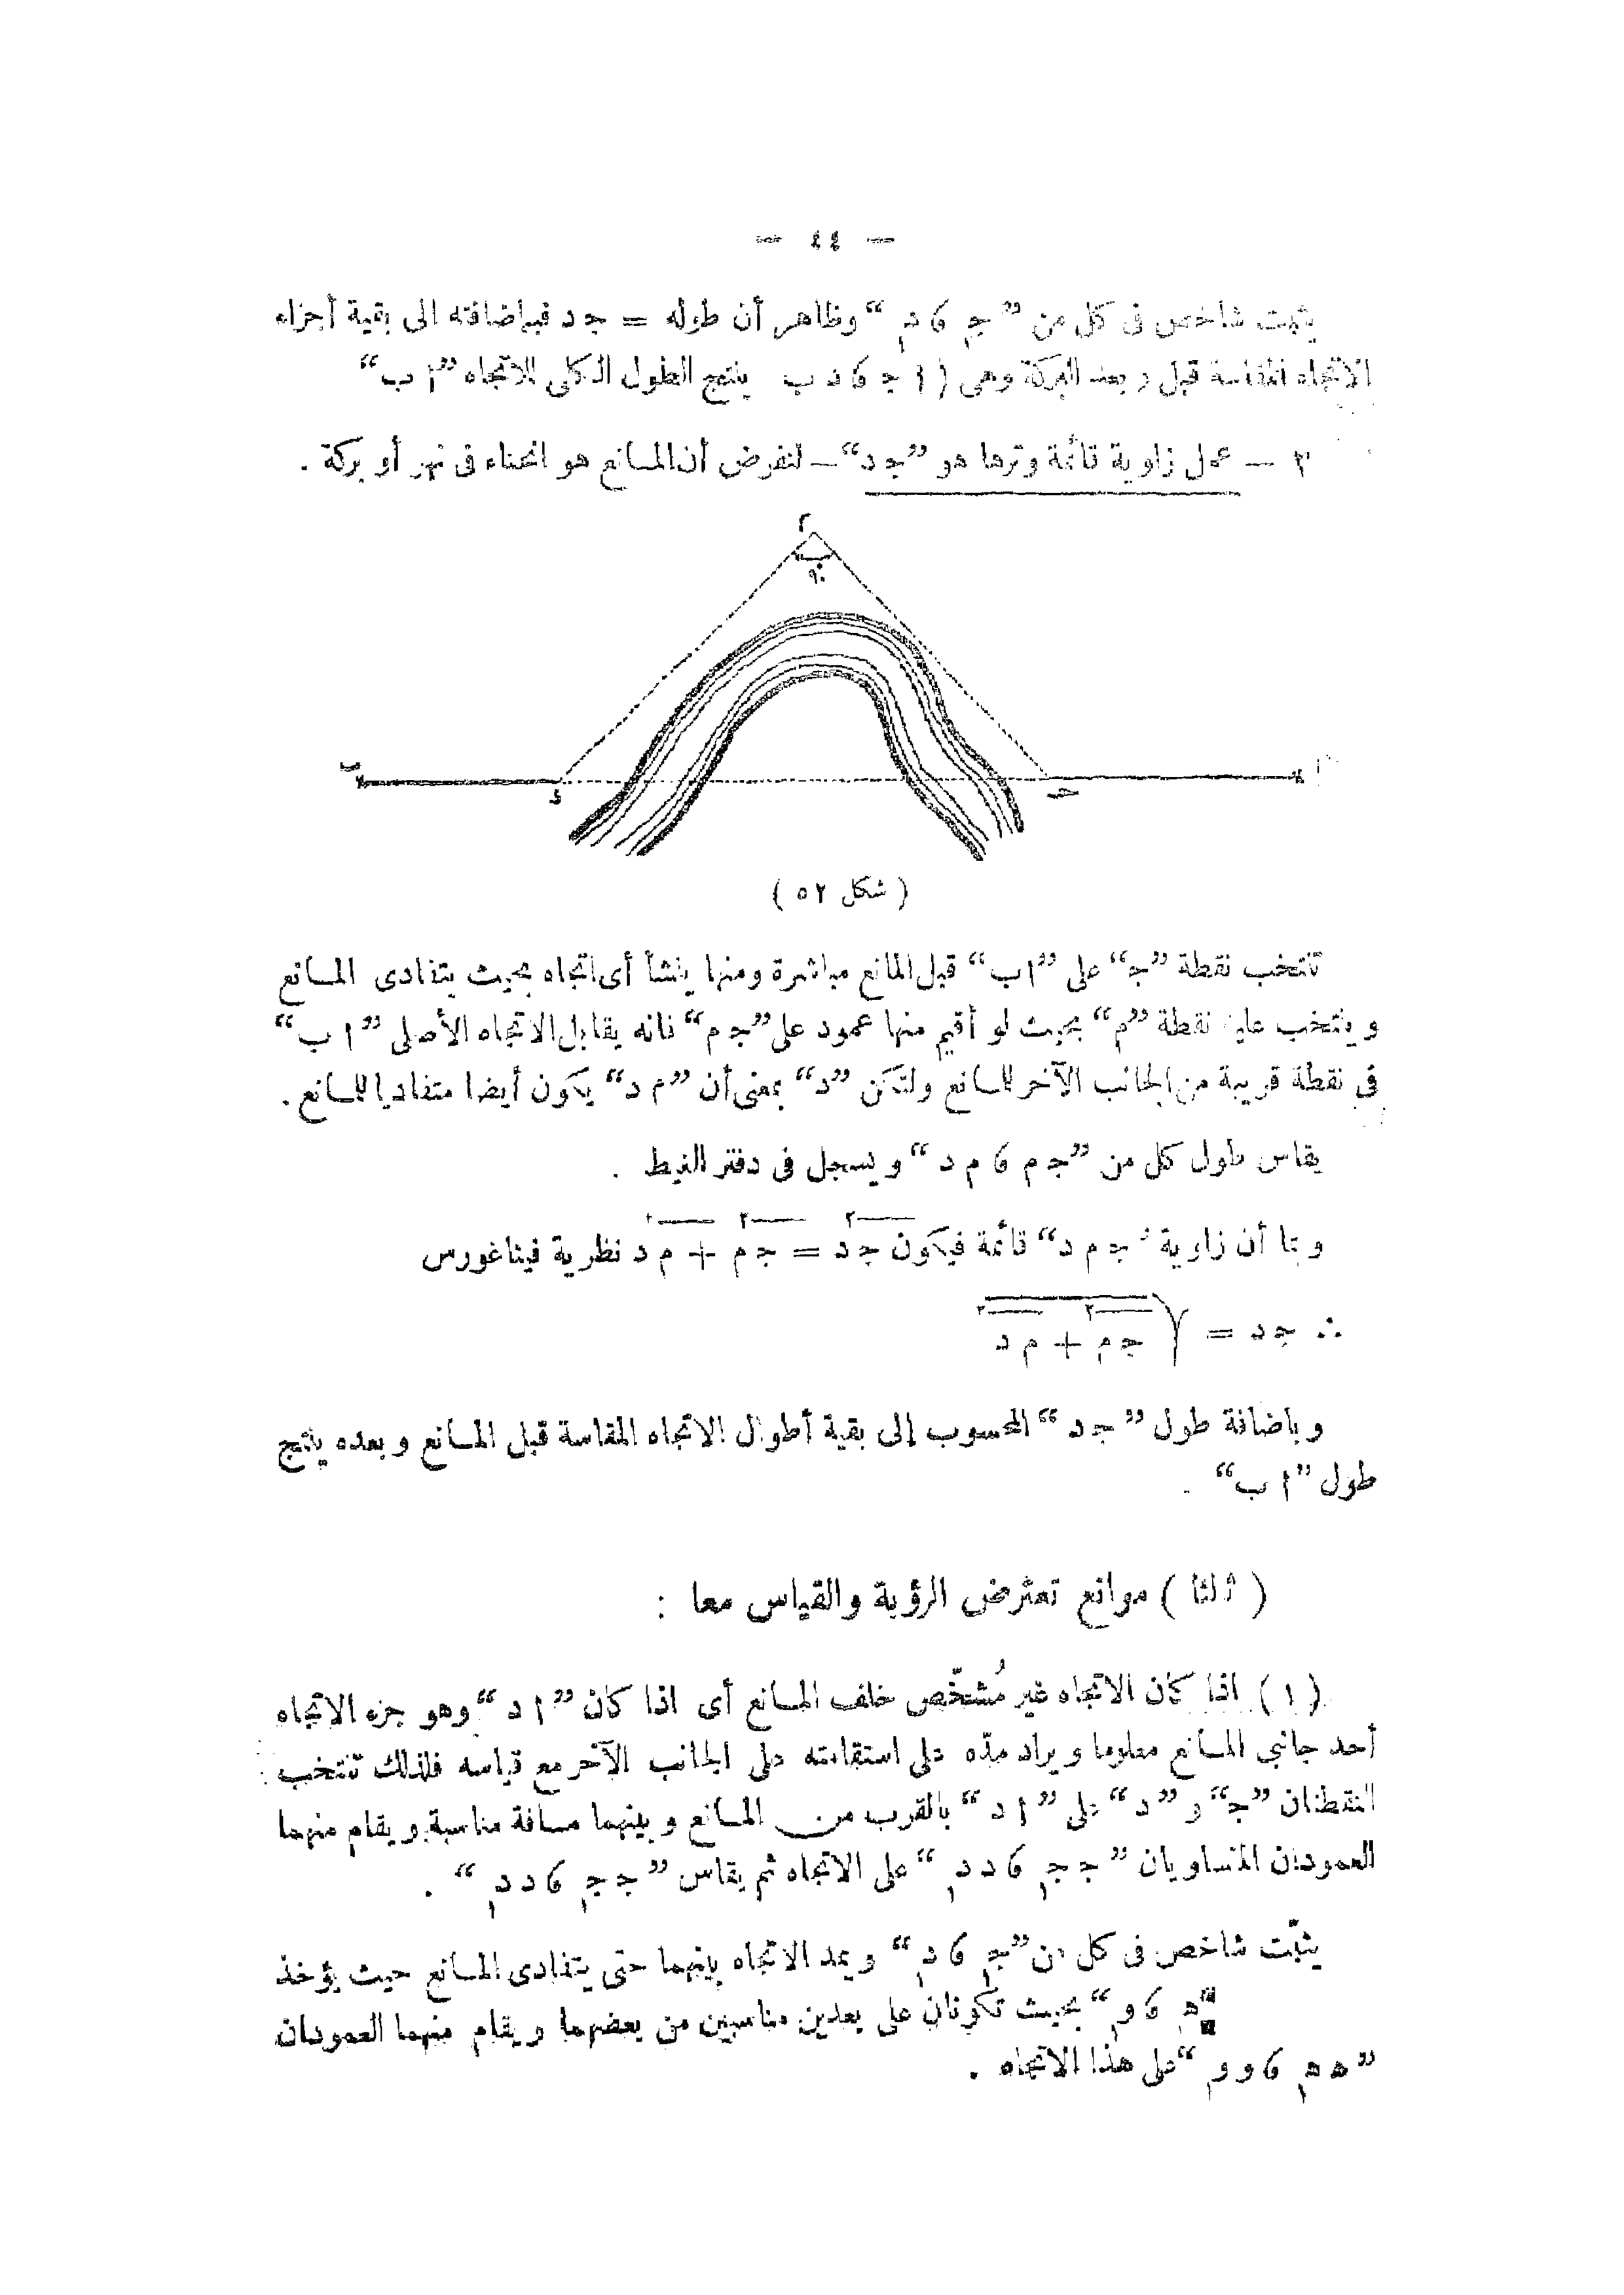 — ٤٤ —
يثبت شاخص فى كل من ”جـ₁ ، د₁“ وظاهر أن طوله = جـ د فبإضافته الى بقية أجزاء
الاتجاه المقاسة قبل وبعد البركة وهى ( ا جـ ، د ب ينتج الطول الكلى للاتجاه ”ا ب“
٣ — عمل زاوية قائمة وترها هو ”جـ د“ — لنفرض أن المانع هو انحناء فى نهر أو بركة .
م
٩٠
ب
د
حـ
ا
( شكل ٥٢ )
تنتخب نقطة ”جـ“ على ”ا ب“ قبل المانع مباشرة ومنها ينشأ أى اتجاه بحيث يتفادى المانع
وينتخب عليه نقطة ”م“ بحيث لو أقيم منها عمود على ”جـ م“ فانه يقابل الاتجاه الأصلى ”ا ب“
فى نقطة قريبة من الجانب الآخر للمانع ولتكن ”د“ بمعنى أن ”م د“ يكون أيضا متفاديا للمانع .
يقاس طول كل من ”جـ م ، م د“ ويسجل فى دفتر الغيط .
وبما أن زاوية ”جـ م د“ قائمة فيكون جـ د² = جـ م² + م د² نظرية فيثاغورس
∴ جـ د = √(جـ م² + م د²)
وباضافة طول ”جـ د“ المحسوب إلى بقية أطوال الاتجاه المقاسة قبل المانع وبعده ينتج
طول ”ا ب“ .
( ثالثا ) موانع تعترض الرؤية والقياس معا :
( ١ ) اذا كان الاتجاه غير مُشخّص خلف المانع أى اذا كان ”ا د“ وهو جزء الاتجاه
أحد جانبى المانع معلوما ويراد مدّه على استقامته على الجانب الآخر مع قياسه فلذلك تنتخب
النقطتان ”جـ“ و ”د“ على ”ا د“ بالقرب من المانع وبينهما مسافة مناسبة ويقام منهما
العمودان المتساويان ”جـ جـ₁ ، د د₁“ على الاتجاه ثم يقاس ”جـ جـ₁ ، د د₁“ .
يثبّت شاخص فى كل من ”جـ₁ ، د₁“ ويمد الاتجاه بينهما حتى يتفادى المانع حيث يؤخذ
”هـ₁ ، و₁“ بحيث تكونان على بعدين مناسبين من بعضهما ويقام منهما العمودان
”هـ هـ₁ ، و و₁“ على هذا الاتجاه .